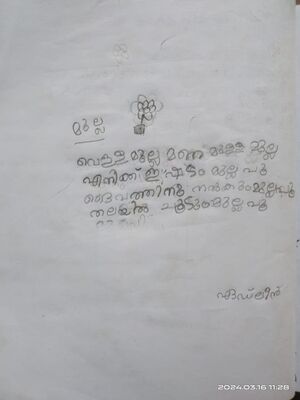 മുല്ല
വെള്ള മുല്ല മഞ്ഞ മുല്ല മുല്ല
എനിക്ക് ഇഷ്ടം മുല്ല പൂ
ദൈവത്തിനു നൽകും മുല്ലപ്പൂ
തലയിൽ ചൂടും മുല്ല പൂ
ഏഡ്ലിൻ
2024.03.16 11:28